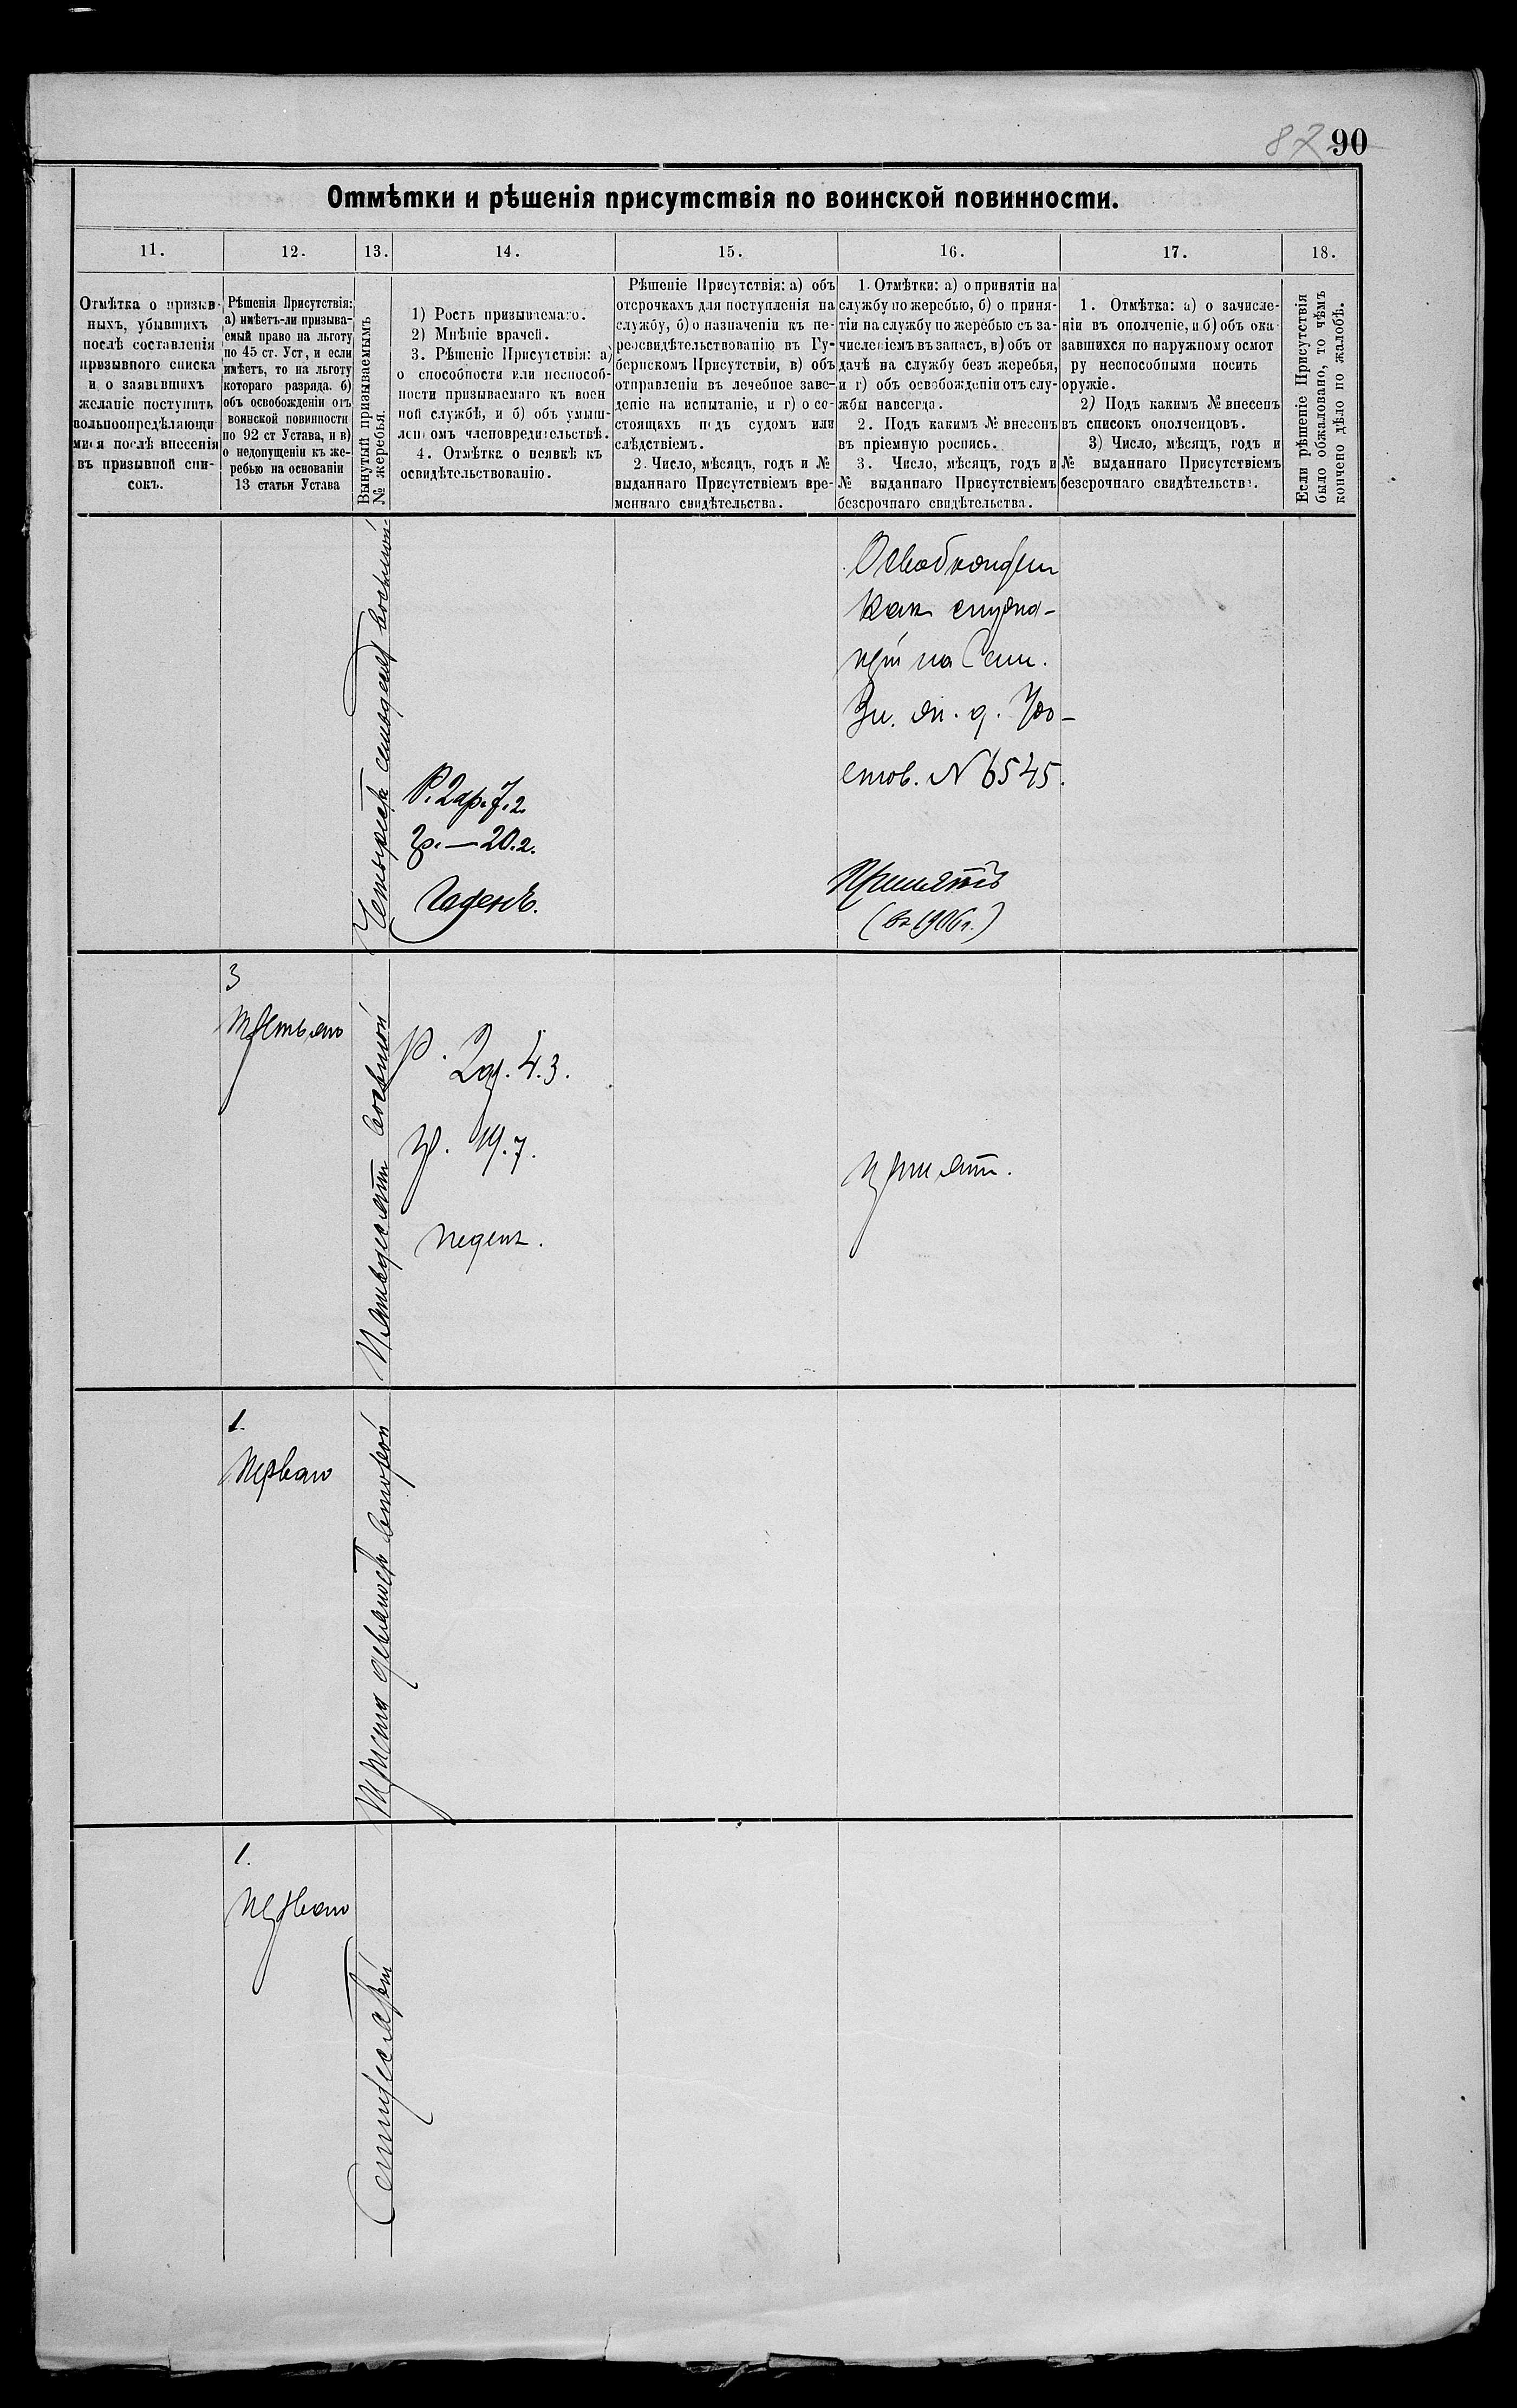 87 90
Отмѣтки и рѣшенія присутствія по воинской повинности.
11. 12. 13. 14. 15. 16. 17. 18.
Отмѣтка о призыв-
ныхъ, убывшихъ
послѣ составленія
призывного списка
и о заявившихъ
желаніе поступить
вольноопредѣляющи
мися послѣ внесенія
въ призывной спи-
сокъ.
Рѣшенія Присутствія:
а) имѣетъ-ли призыва-
емый право на льготу
по 45 ст. Уст, и если
имѣетъ, то на льготу
котораго разряда. б)
объ освобожденіи отъ
воинской повинности
по 92 ст Устава, и в)
о недопущеніи къ же-
ребью на основаніи
13 статьи Устава
Вынутый призываемымъ
№ жеребья.
1) Ростъ призываемаго.
2) Мнѣніе врачей.
3. Рѣшеніе Присутствія: а)
о способности или неспособ-
ности призываемаго къ воен
ной службѣ, и б) объ умыш-
ленномъ членовредительствѣ.
4. Отмѣтка о неявкѣ къ
освидѣтельствованію.
Рѣшеніе Присутствія: а) объ
отсрочкахъ для поступленія на
службу, б) о назначеніи къ пе-
реосвидѣтельствованію въ Гу-
бернскомъ Присутствіи, в) объ
отправленіи въ лечебное заве-
деніе на испытаніе, и г) о со-
стоящахъ подъ судомъ или
слѣдствіемъ.
2. Число, мѣсяцъ, годъ и №
выданнаго Присутствіемъ вре-
меннаго свидѣтельства.
1. Отмѣтки: а) о принятіи на
службу по жеребью, б) о приня-
тіи на службу по жеребью съ за-
численіемъ въ запасъ, в) объ от
дачѣ на службу безъ жеребья,
и г) объ освобожденіи отъ слу-
жбы навсегда.
2. Подъ какимъ № внесенъ
въ пріемную роспись.
3. Число, мѣсяцъ, годъ и
№ выданнаго Присутствіемъ
безсрочнаго свидѣтельства.
1. Отмѣтка: а) о зачисле-
ніи въ ополченіе, и б) объ ока
завшихся по наружному осмот
ру неспособными носить
оружіе.
2) Подъ какимъ № внесенъ
въ списокъ ополченцовъ.
3) Число, мѣсяцъ, годъ и
№ выданнаго Присутствіемъ
безсрочнаго свидѣтельства.
Если рѣшеніе Присутствія
было обжаловано, то чѣмъ
кончено дѣло по жалобѣ.
Четыреста семьдесят восьмой
Р. 2 ар. 7.2.
гр. — 20.2.
Годенъ.
как
№ 6545.
Принятъ
(въ 1906 г.)
3
третьяго
Пятьдесят восьмой
р. 2 ар. 4.3.
гр. 19.7.
годенъ.
принят.
1.
перваго
Триста девяносто второй
1.
перваго
Семидесятый